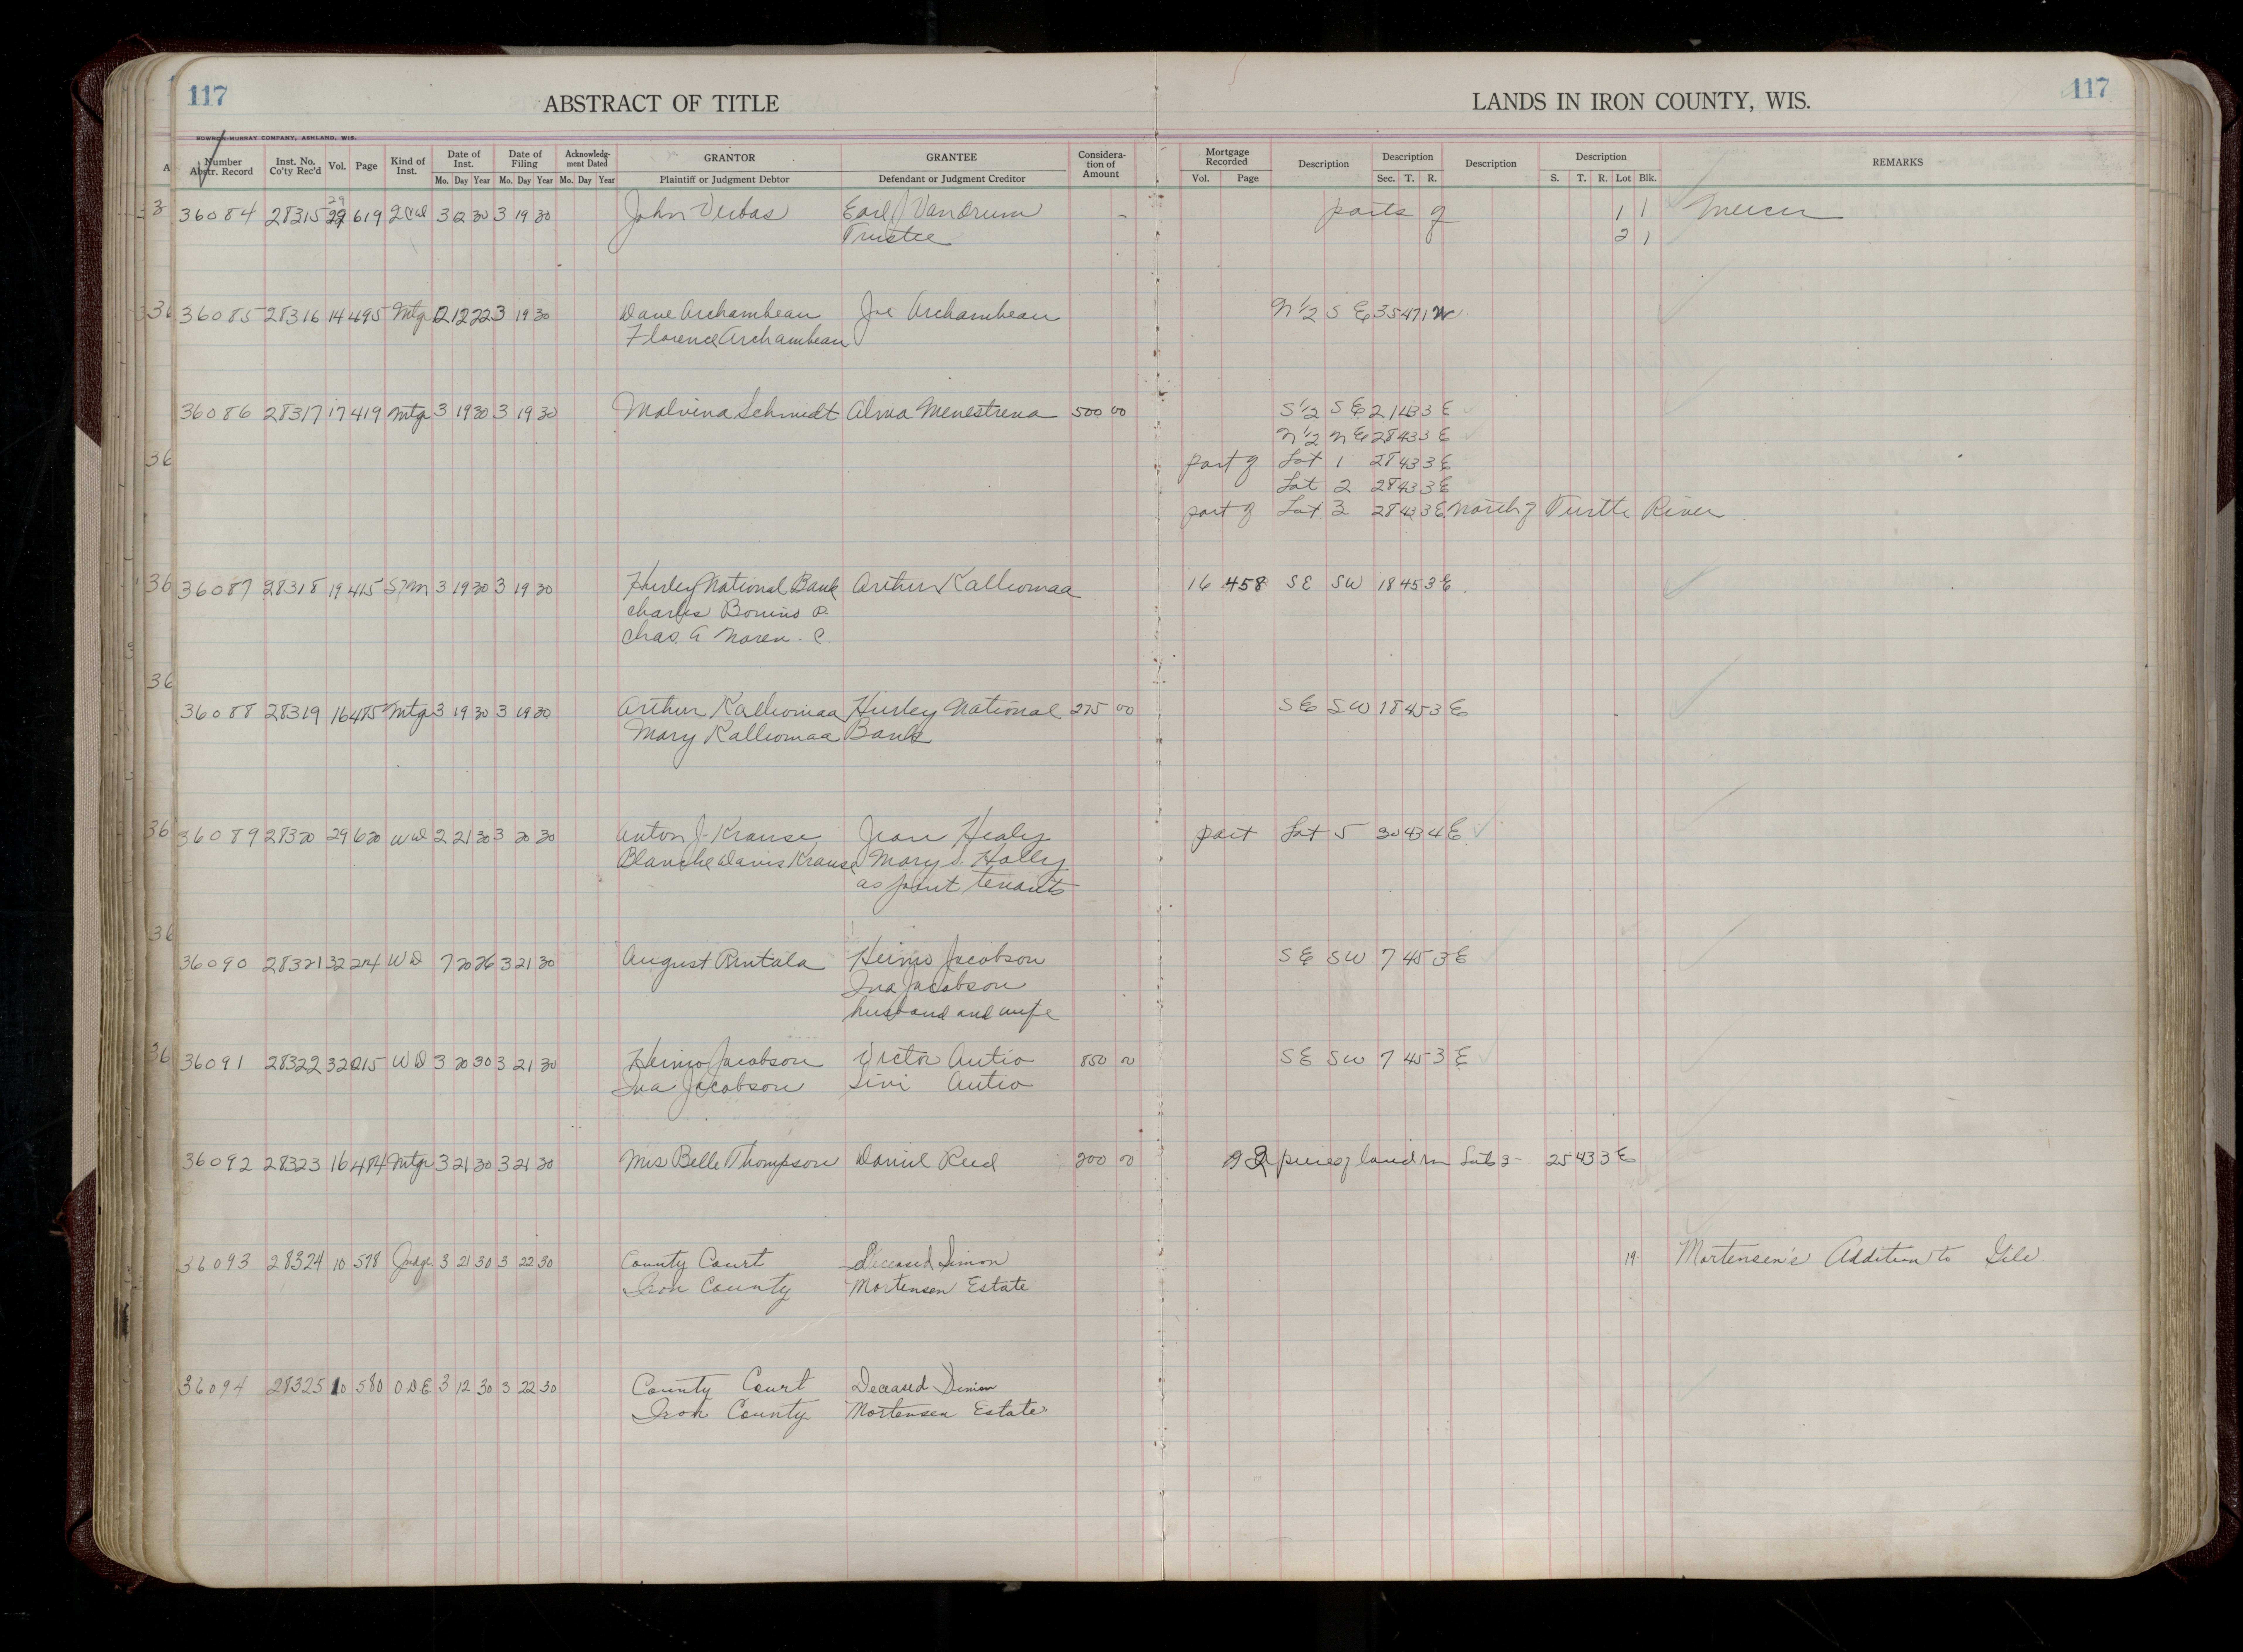 117 ABSTRACT OF TITLE LANDS IN IRON COUNTY, WIS. 117
BOWRON-MURRAY COMPANY, ASHLAND, WIS.
Number Abstr. Record Inst. No. Co'ty Rec'd Vol. Page Kind of Inst. Date of Inst. Date of Filing Acknowledg-ment Dated GRANTOR GRANTEE Considera-tion of Amount Mortgage Recorded Description Description Description Description REMARKS
Mo. Day Year Mo. Day Year Mo. Day Year Plaintiff or Judgment Debtor Defendant or Judgment Creditor Vol. Page Sec. T. R. S. T. R. Lot Blk.
36084 28315 29 619 3 12 30 3 19 30 John Verbos Earl J Vandrum - parts of 1 1 Mercer
Trustee 2 1
36085 28316 14 495 Mtg 12 12 22 3 19 30 Dave Archambeau Joe Archambeau N 1/2 S E 35 47 1 W
Florence Archambeau
36086 28317 17 419 Mtg 3 19 30 3 19 30 Malvina Schmidt Alma Menestrena 500 00 S 1/2 S E 21 43 3 E
N 1/2 N E 28 43 3 E
part of Lot 1 28 43 3 E
Lot 2 28 43 3 E
part of Lot 3 28 43 3 E North of Turtle River
36087 28318 19 415 S.M 3 19 30 3 19 30 Hurley National Bank Arthur Kalliomaa 16 458 SE SW 18 45 3 E
Charles Bonino P.
Chas. A Noren. C.
36088 28319 16 485 Mtg 3 19 30 3 19 30 Arthur Kalliomaa Hurley National 275 00 SE SW 18 45 3 E
Mary Kalliomaa Bank
36089 28320 29 620 W D 2 21 30 3 20 30 Anton J. Krause Jean Healy part Lot 5 30 43 4 E
Blanche Davis Krause Mary S. Holly
as joint tenants
36090 28321 32 214 W D 7 20 26 3 21 30 August Rintala Heimo Jacobson SE SW 7 45 3 E
Ina Jacobson
husband and wife
36091 28322 32 215 W D 3 20 30 3 21 30 Heimo Jacobson Victor Autio 850 00 SE SW 7 45 3 E
Ina Jacobson Siivi Autio
36092 28323 16 484 Mtg 3 21 30 3 21 30 Mrs Belle Thompson Daniel Reed 200 00 2 pieces of land in Lot 2 25 43 3 E
36093 28324 10 578 Judge. 3 21 30 3 22 30 County Court Deceased Simon 19 Mortensen's Addition to Gile.
Iron County Mortensen Estate
36094 28325 10 580 O.D.E. 3 12 30 3 22 30 County Court Deceased Simon
Iron County Mortensen Estate